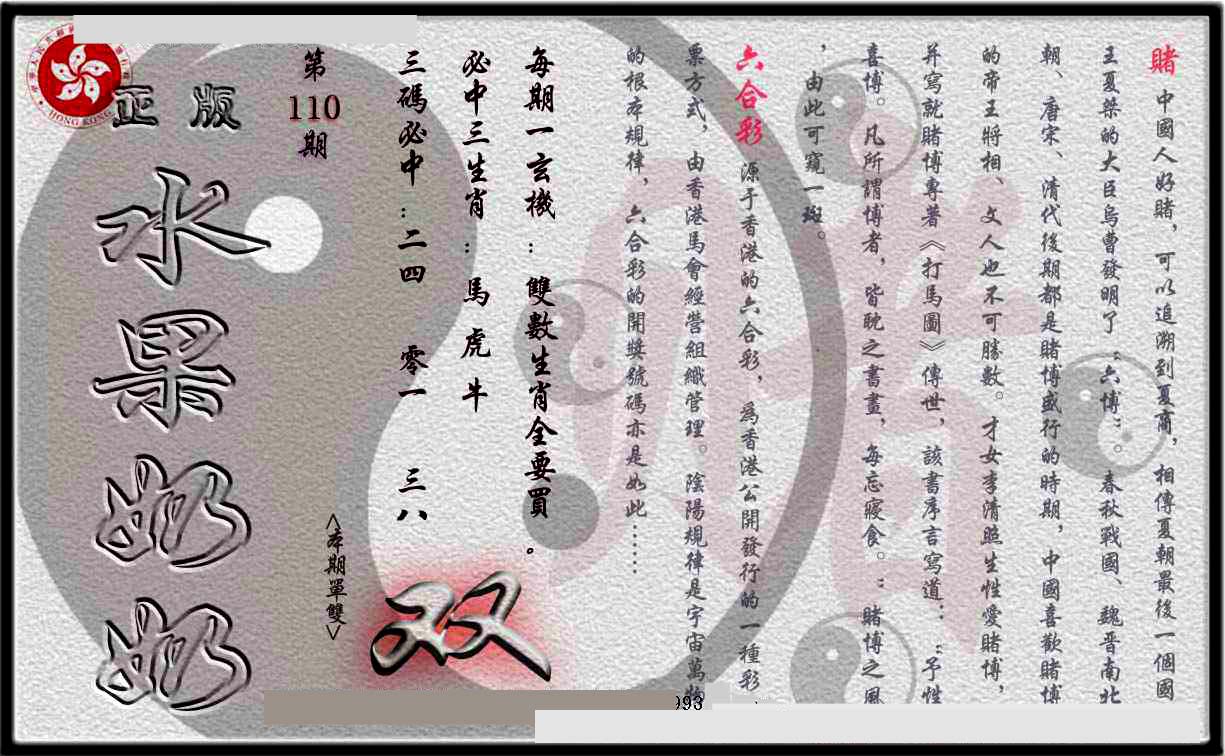 賭 中國人好賭，可以追溯到夏商，相傳夏朝最後一個國
王夏桀的大臣烏曹發明了“六博”。春秋戰國、魏晋南北
朝、唐宋、清代後期都是賭博盛行的時期，中國喜歡賭博
的帝王將相、文人也不可勝數。才女李清照生性愛賭博，
并寫就賭博專著《打馬圖》傳世，該書序言寫道：“予性
喜博。凡所謂博者，皆耽之書畫，每忘寢食。”賭博之風
，由此可窺一斑。
六合彩 源于香港的六合彩，爲香港公開發行的一種彩
票方式，由香港馬會經營組織管理。陰陽規律是宇宙萬物
的根本規律，六合彩的開獎號碼亦是如此……
每期一玄機：雙數生肖全要買。
必中三生肖：馬 虎 牛
三碼必中：二四 零一 三八
双
<本期單雙>
第110期
正版
水果奶奶
HONG KONG
993